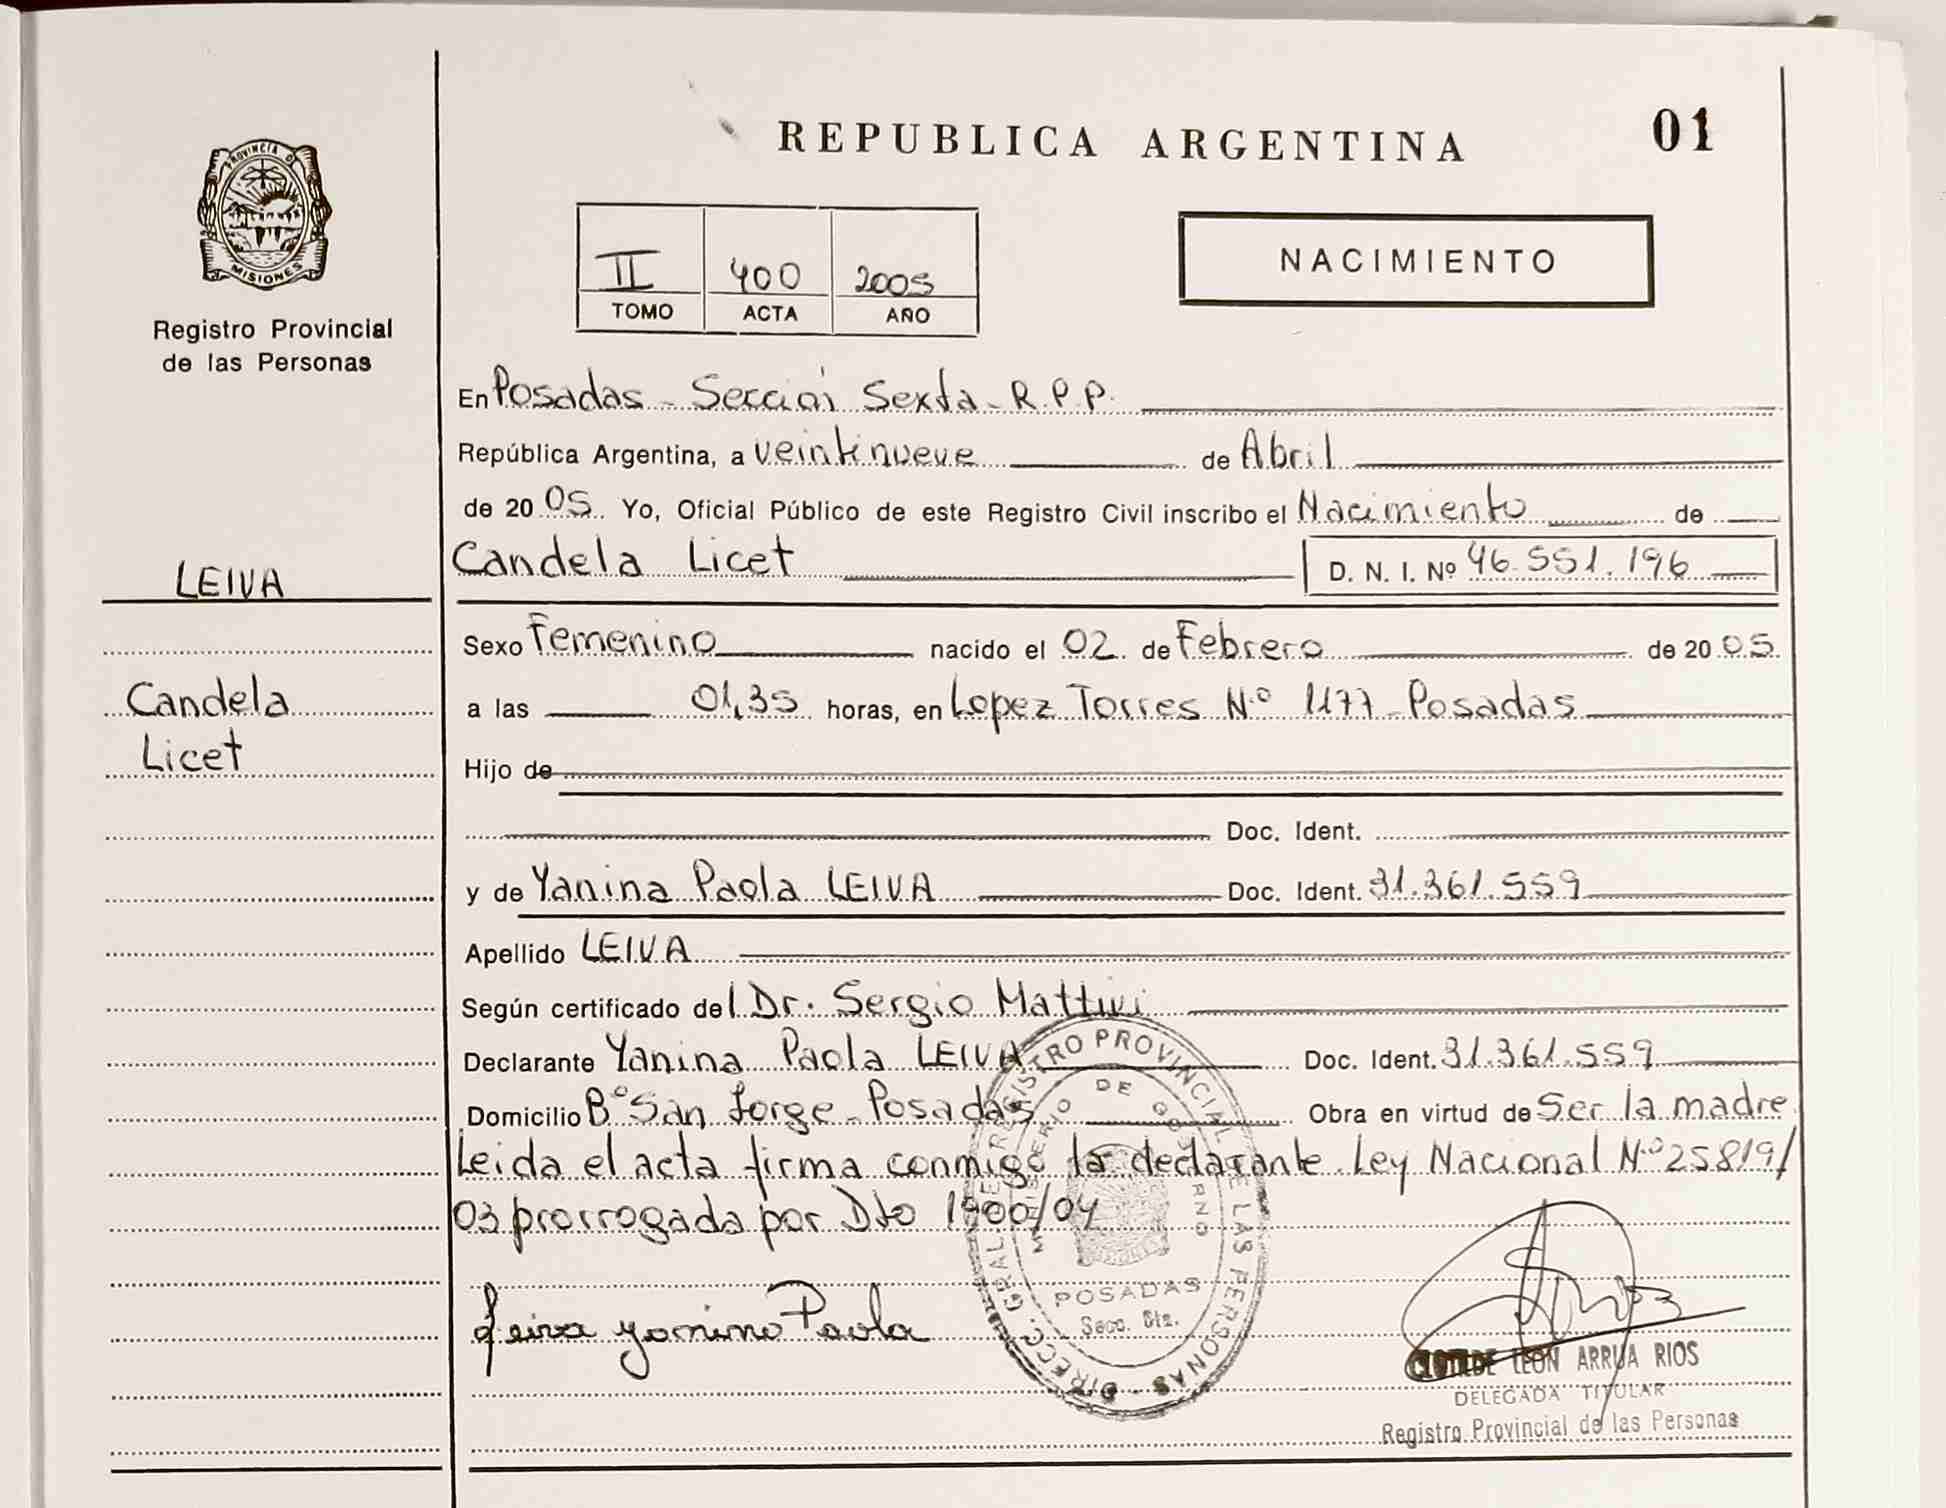 REPUBLICA ARGENTINA
01
PROVINCIA D
MISIONES
Registro Provincial
de las Personas
II 400 2005
TOMO ACTA AÑO
NACIMIENTO
En Posadas - Sección Sexta - R.P.P.
República Argentina, a veintinueve de Abril
de 2005. Yo, Oficial Público de este Registro Civil inscribo el Nacimiento de
LEIVA
Candela Licet D. N. I. Nº 46.551.196
Sexo Femenino nacido el 02 de Febrero de 2005.
Candela
Licet
a las 01,35 horas, en Lopez Torres Nº 1177 - Posadas
Hijo de
Doc. Ident.
y de Yanina Paola LEIVA Doc. Ident. 31.361.559
Apellido LEIVA
Según certificado del Dr. Sergio Mattivi
Declarante Yanina Paola LEIVA Doc. Ident. 31.361.559
Domicilio Bº San Jorge - Posadas Obra en virtud de Ser la madre
Leida el acta firma conmigo la declarante. Ley Nacional Nº 25819/
03 prorrogada por Dto 1900/04
Leiva yanina Paola
DIRECC. GRAL. DE REGISTRO PROVINCIAL DE LAS PERSONAS
MINISTERIO DE GOBIERNO
POSADAS
Secc. 6ta.
CLOTILDE LEON ARRUA RIOS
DELEGADA TITULAR
Registro Provincial de las Personas